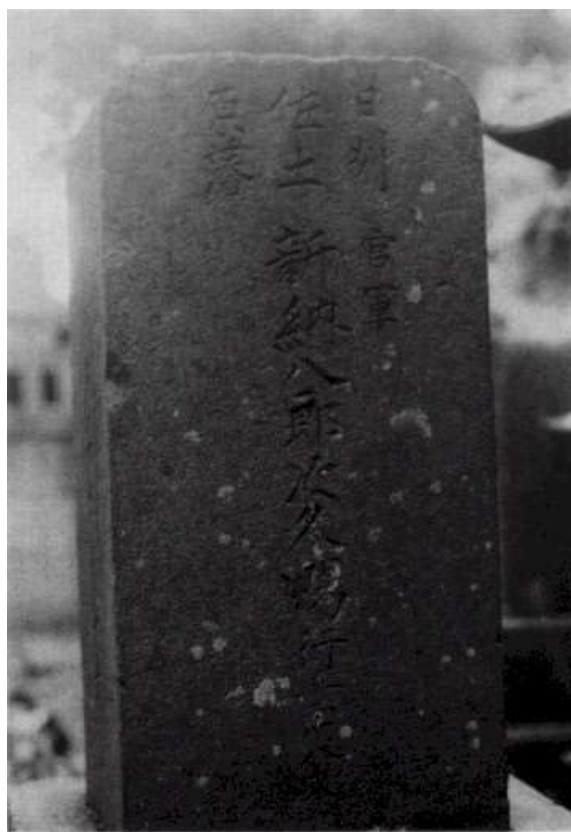 日州 官軍
佐土 新納八郎次久鴻行
原藩